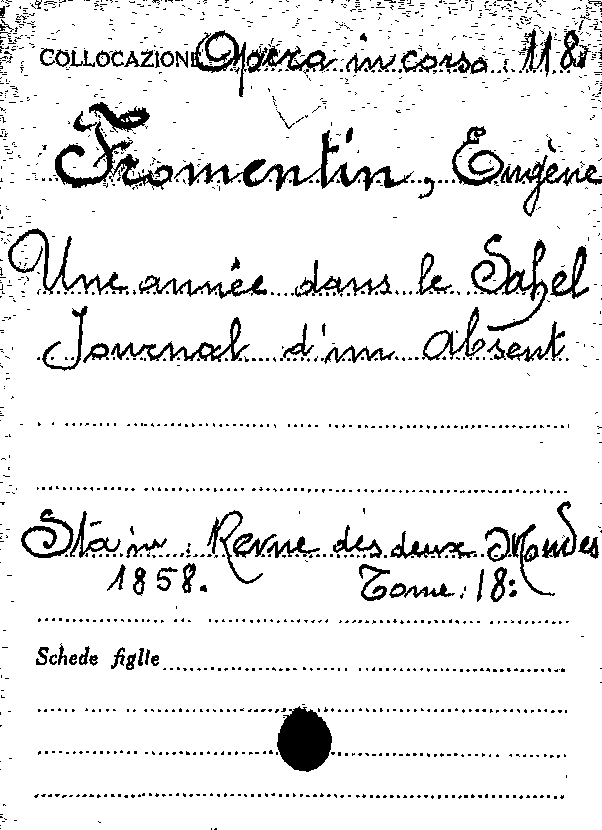 COLLOCAZIONE Opera in corso. 118.
Fromentin, Eugène
Une année dans le Sahel
Journal d'un Absent
Sta in: Revue des deux Mondes
1858. Tome: 18:
Schede figlie